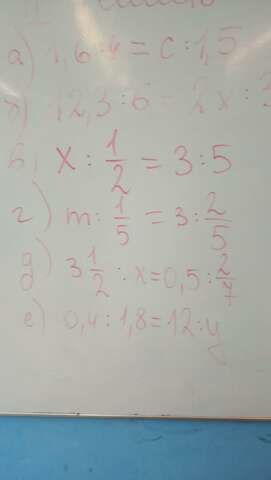 а) 1,6:4 = с:1,5
б) 12,3:6 = 2x:
в) x : 1/2 = 3:5
г) m : 1/5 = 3 : 2/5
д) 3 1/2 : x = 0,5 : 2/7
е) 0,4:1,8=12:y